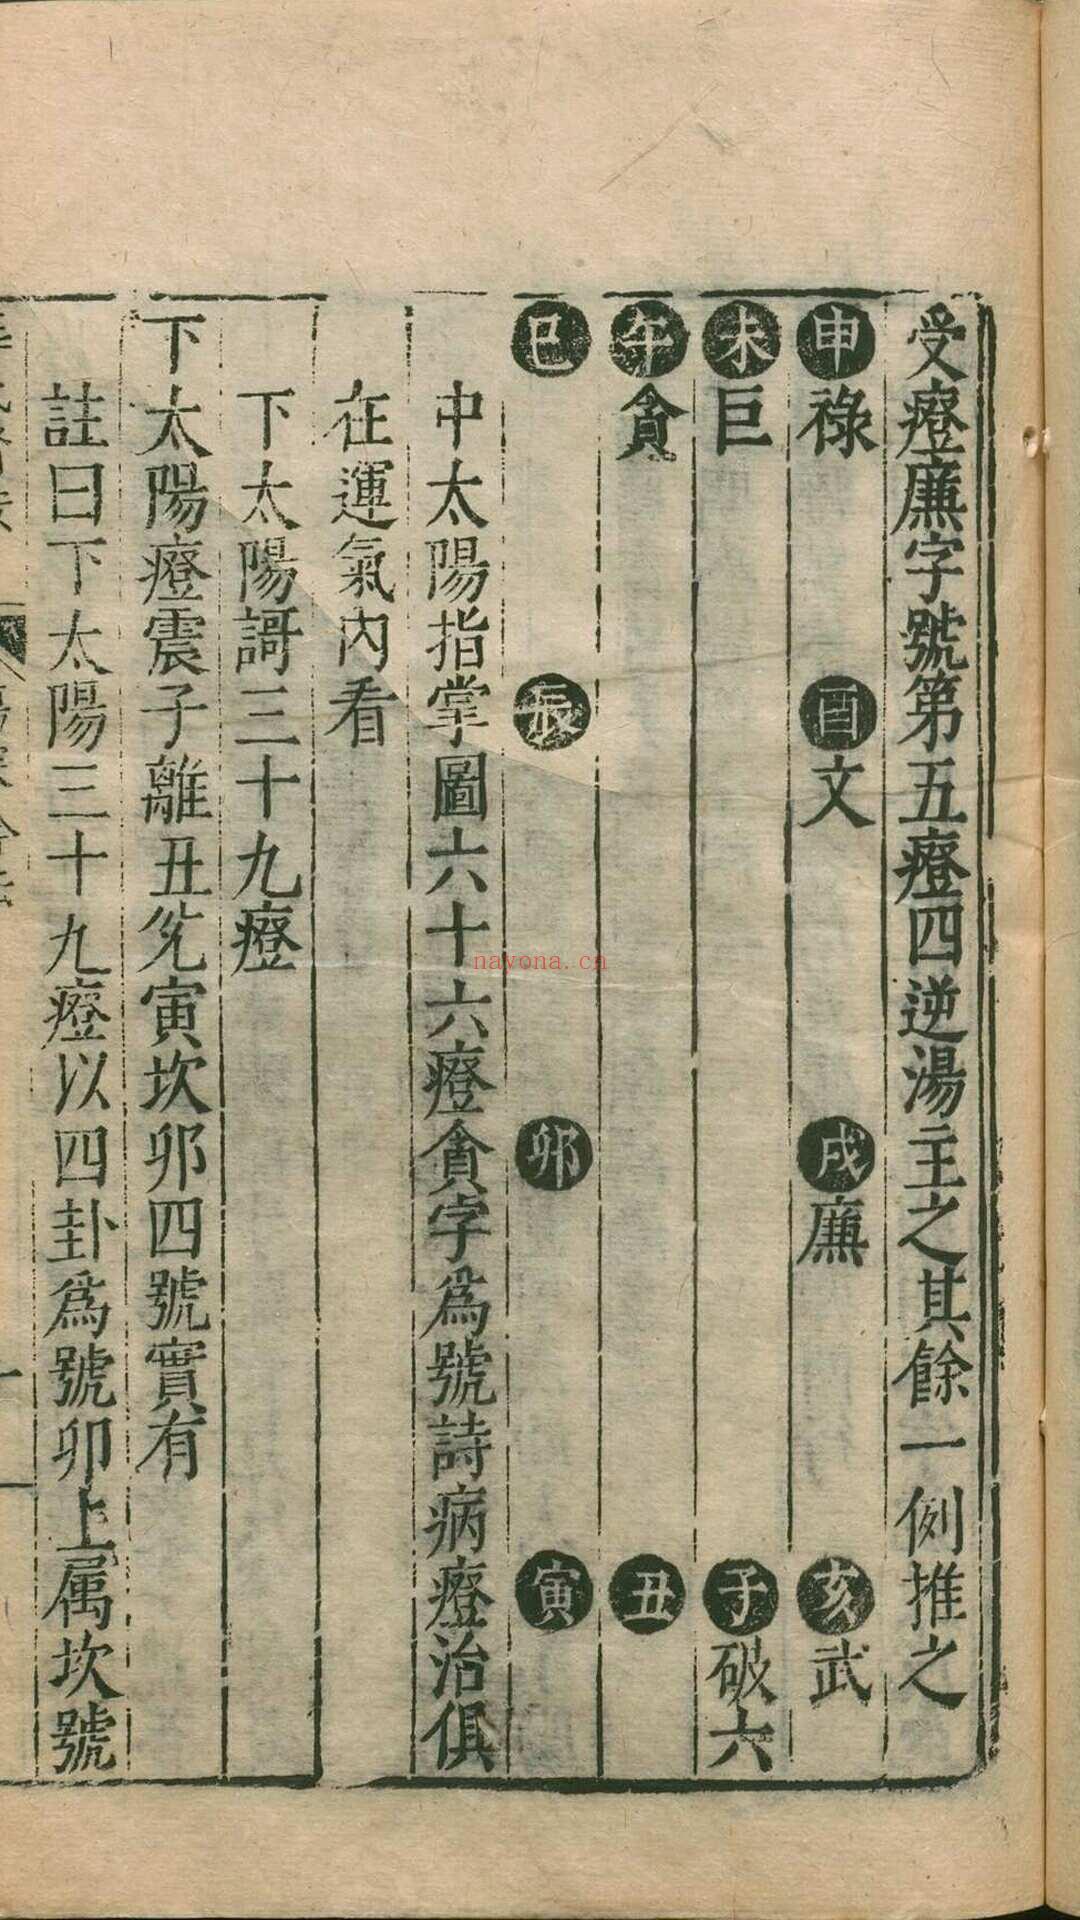 受癥廉字號第五癥四逆湯主之其餘一例推之
申祿 酉文 戌廉 亥武
未巨 子破六
午貪 丑
巳 辰 卯 寅
中太陽指掌圖六十六癥貪字為號詩病癥治俱
在運氣內看
下太陽謌三十九癥
下太陽癥震子離丑兊寅坎卯四號實有
註曰下太陽三十九癥以四卦為號卯上属坎號
nayona.cn